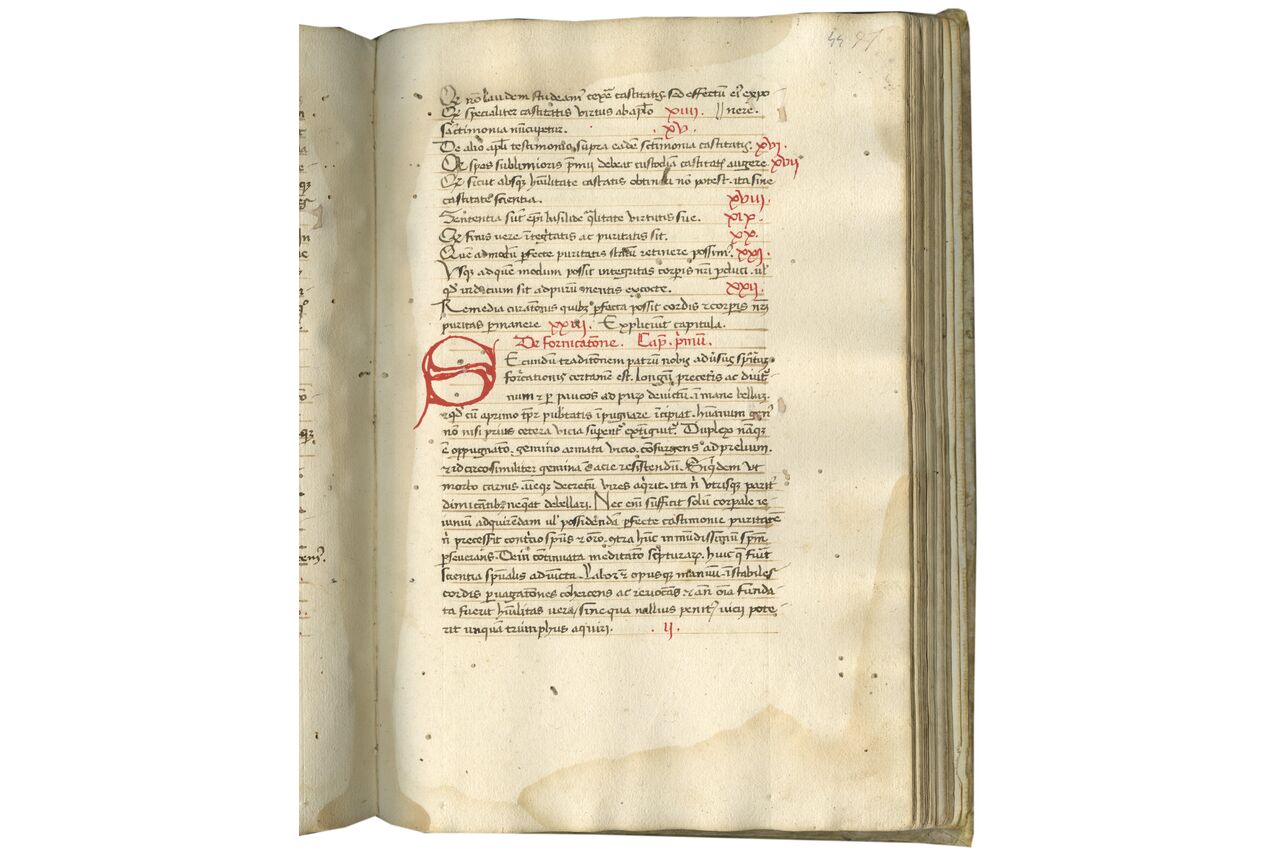 Qꝫ nō laudem studeamꝰ cepᷓe castitatꝭ. sꝫ effectū eiꝰ expo
Qꝫ specialiter castitatis virtus ab aplo xiiii. nere.
sanctimonia nūcupetur. xv.
De alio apli testimonio, supra eadē sctīmonia castitatꝭ. xvi.
Qꝫ spes sublimioris p̄mii debeat custodiā castitatꝭ augere xvii
Qꝫ sicut absqꝫ hūilitate castitatis obtineri nō potest. ita sine
castitate scientia. xviii.
Sententia sūt epī basilii de q̄litate virtutis sue. xix.
Qꝫ finis vere ītegritatis ac puritatis sit. xx.
Que admodū ꝑfecte puritatis statū retinere possimꝰ. xxi.
Vsqꝫ ad quē modum possit integritas corpis nr̄i ꝑduci. ul
qd' indicium sit ad purū mentis excocte. xxii.
Remedia curationis quibꝫ ꝑfecta possit cordis ⁊ corpis nr̄i
puritas ꝑmanere xxiii. Expliciūt capitula.
De fornicatōne. Cap. p̄mū.
Secundū traditōnem patrum nobis aduersus spiritus
fornicationis certamē est. longū p̄ ceteris ac diutur
num ⁊ ꝑ paucos ad purū deuictū. īmane bellum
⁊ qd' cū a primo tp̄r pubtatis īpugnare īcipiat. humanum genꝰ
nō nisi prius cetera vicia suꝑentꝰ extīguitꝰ. Duplex nāqꝫ
ē oppugnatō. gemino armata vicio. cōsurgens ad prelium.
⁊ idcirco similiter gemina ē acie resistendū. Siqdem vt
morbo carnis. aīeqꝫ decretū vires aqrit. ita n̄ vtrisqꝫ parit'
dimicātibꝫ neqeat debellari. Nec enī sufficit solū corpale ie
iunium ad quirendam ul' possidendā ꝑfecte castimonie puritatē
n̄ precesserit contritio spūs ⁊ oro. ꝯtra hūc inmūdissimū spm̄
ꝑseuerans. Dein cōtinuata meditatō scripturarū. huic q̄ fuīt
scientia spūalis adiūcta. Labor ⁊ opusqꝫ manuū. īstabiles
cordis ꝑuagatōnes cohercens ac reuocans ⁊ an̄ oīa funda
ta fuerit hūilitas vera, sine qua nullius penitꝰ uicii pote
rit unquā triumphus aquiri. ii.